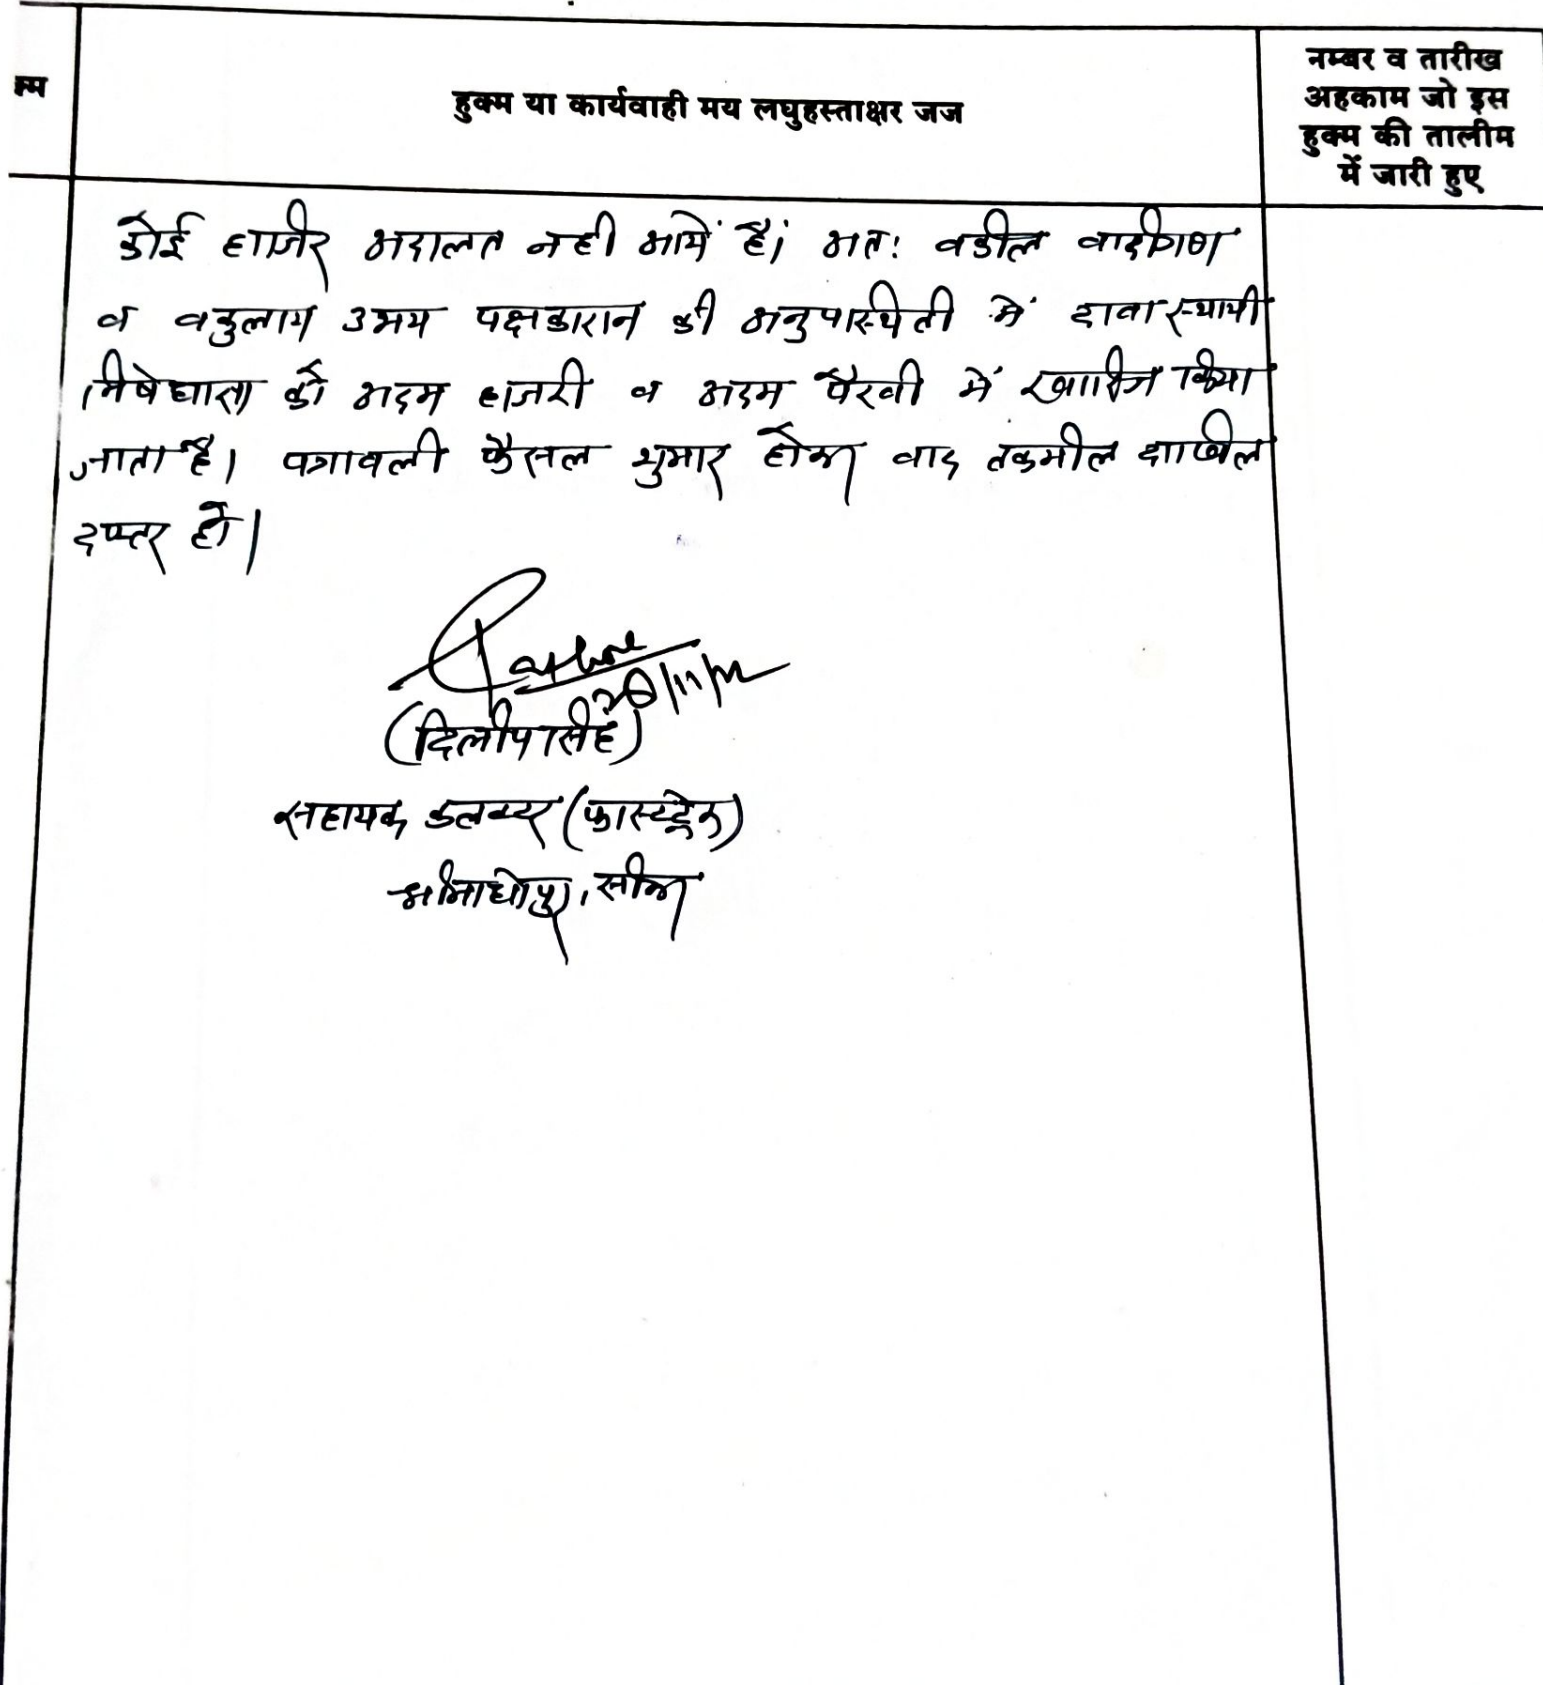 क्म
हुक्म या कार्यवाही मय लघुहस्ताक्षर जज
नम्बर व तारीख
अहकाम जो इस
हुक्म की तालीम
में जारी हुए
कोई हाजिर अदालत नही आयें हैं। अतः वकील वादीगण
व वकुलाय उभय पक्षकारान की अनुपस्थिती में दावा स्थायी
निषेधाज्ञा को अदम हाजरी व अदम पैरवी में खारिज किया
जाता है। पत्रावली फैसल शुमार होकर बाद तकमील दाखिल
दफ्तर हो।
28/11/22
(दिलीपसिंह)
सहायक कलक्टर (फास्टट्रेक)
श्रीमाधोपुर, सीकर